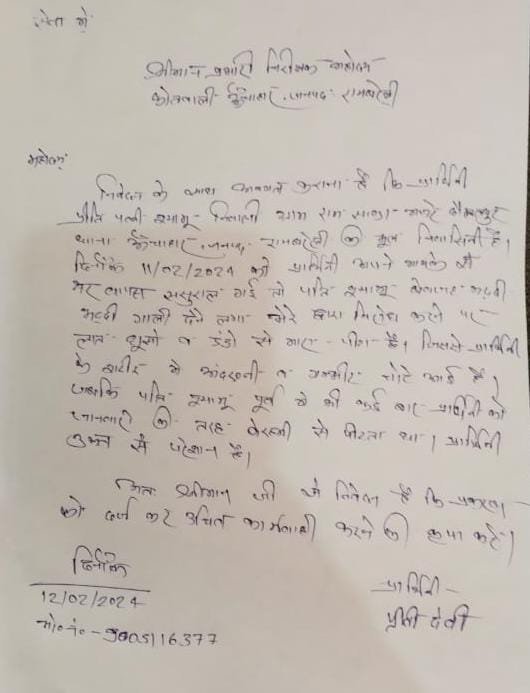 सेवा में
श्रीमान प्रभारी निरीक्षक महोदय
कोतवाली ऊँचाहार, जनपद रायबरेली
महोदय,
निवेदन के साथ अवगत कराना है कि प्रार्थिनी
प्रीति पत्नी श्यामू निवासी ग्राम राम सान्डा मजरे
थाना ऊँचाहार, जनपद रायबरेली की मूल निवासिनी है।
दिनाँक 11/02/2024 को प्रार्थिनी अपने मायके से
घर वापस ससुराल गई तो पति श्यामू बेवजह भद्दी
भद्दी गाली देने लगा मेरे द्वारा विरोध करने पर
लात घूसों व डंडो से मारा-पीटा है। जिससे प्रार्थिनी
के शरीर में अंदरूनी व गम्भीर चोटे आई है।
जबकि पति श्यामू पूर्व में भी कई बार प्रार्थिनी को
जानवरों की तरह बेरहमी से पीटता था। प्रार्थिनी
उक्त से परेशान है।
अतः श्रीमान जी से निवेदन है कि प्रकरण
को दर्ज कर उचित कार्यवाही करने की कृपा करें।
दिनाँक
12/02/2024
मो०नं०-9005116377
प्रार्थिनी-
प्रीती देवी